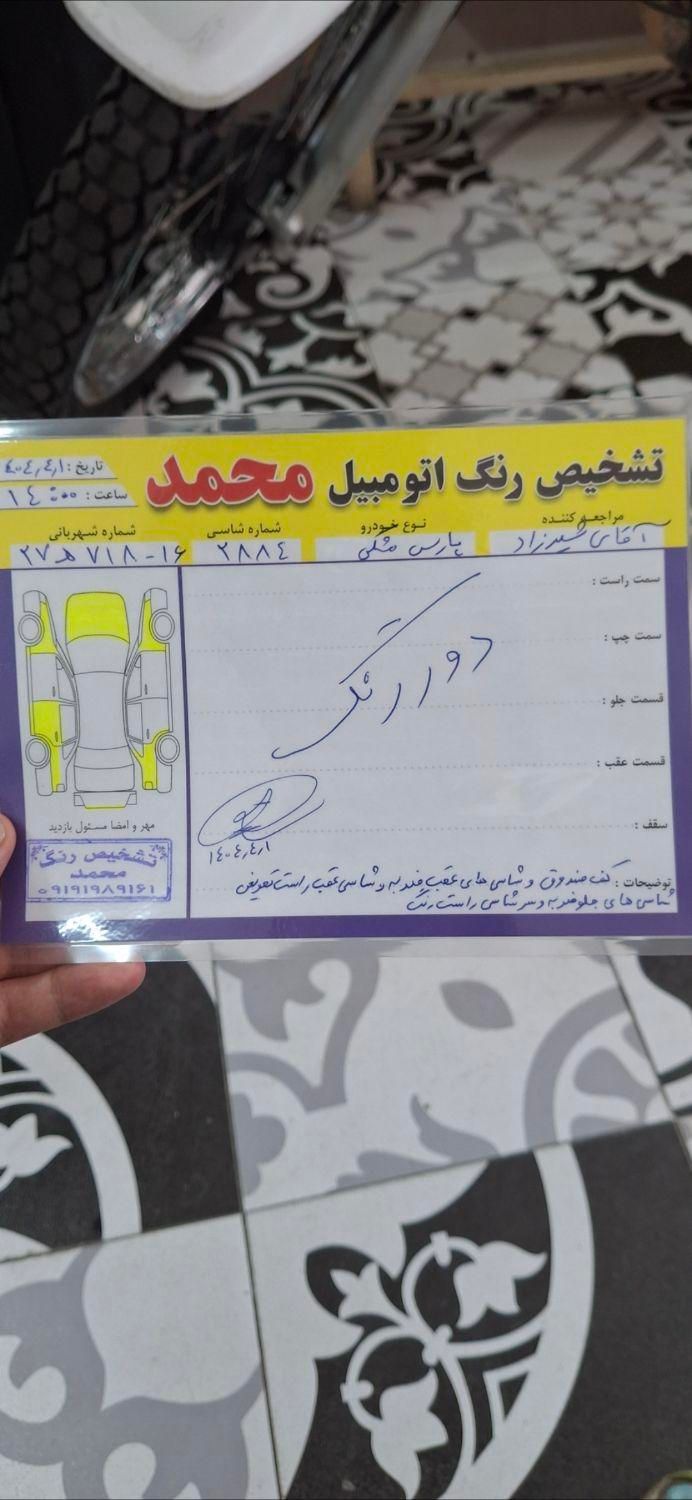 تشخیص رنگ اتومبیل محمد
تاریخ : ۱۴۰۴,۴,۱
ساعت : ۱۴:۰۰
مراجعه کننده
آقای شیرزاد
نوع خودرو
پارس مشکی
شماره شاسی
۲۸۸۴
شماره شهربانی
۲۷ ه ۷۱۸-۱۶
سمت راست :
سمت چپ :
دور رنگ
قسمت جلو :
قسمت عقب :
سقف :
۱۴۰۴,۴,۱
توضیحات : کف صندوق و شاسی های عقب ضربه و شاسی عقب راست تعویض
شاسی های جلو ضربه و سر شاسی راست رنگ
مهر و امضا مسئول بازدید
تشخیص رنگ
محمد
۰۹۱۹۱۹۸۹۱۶۱